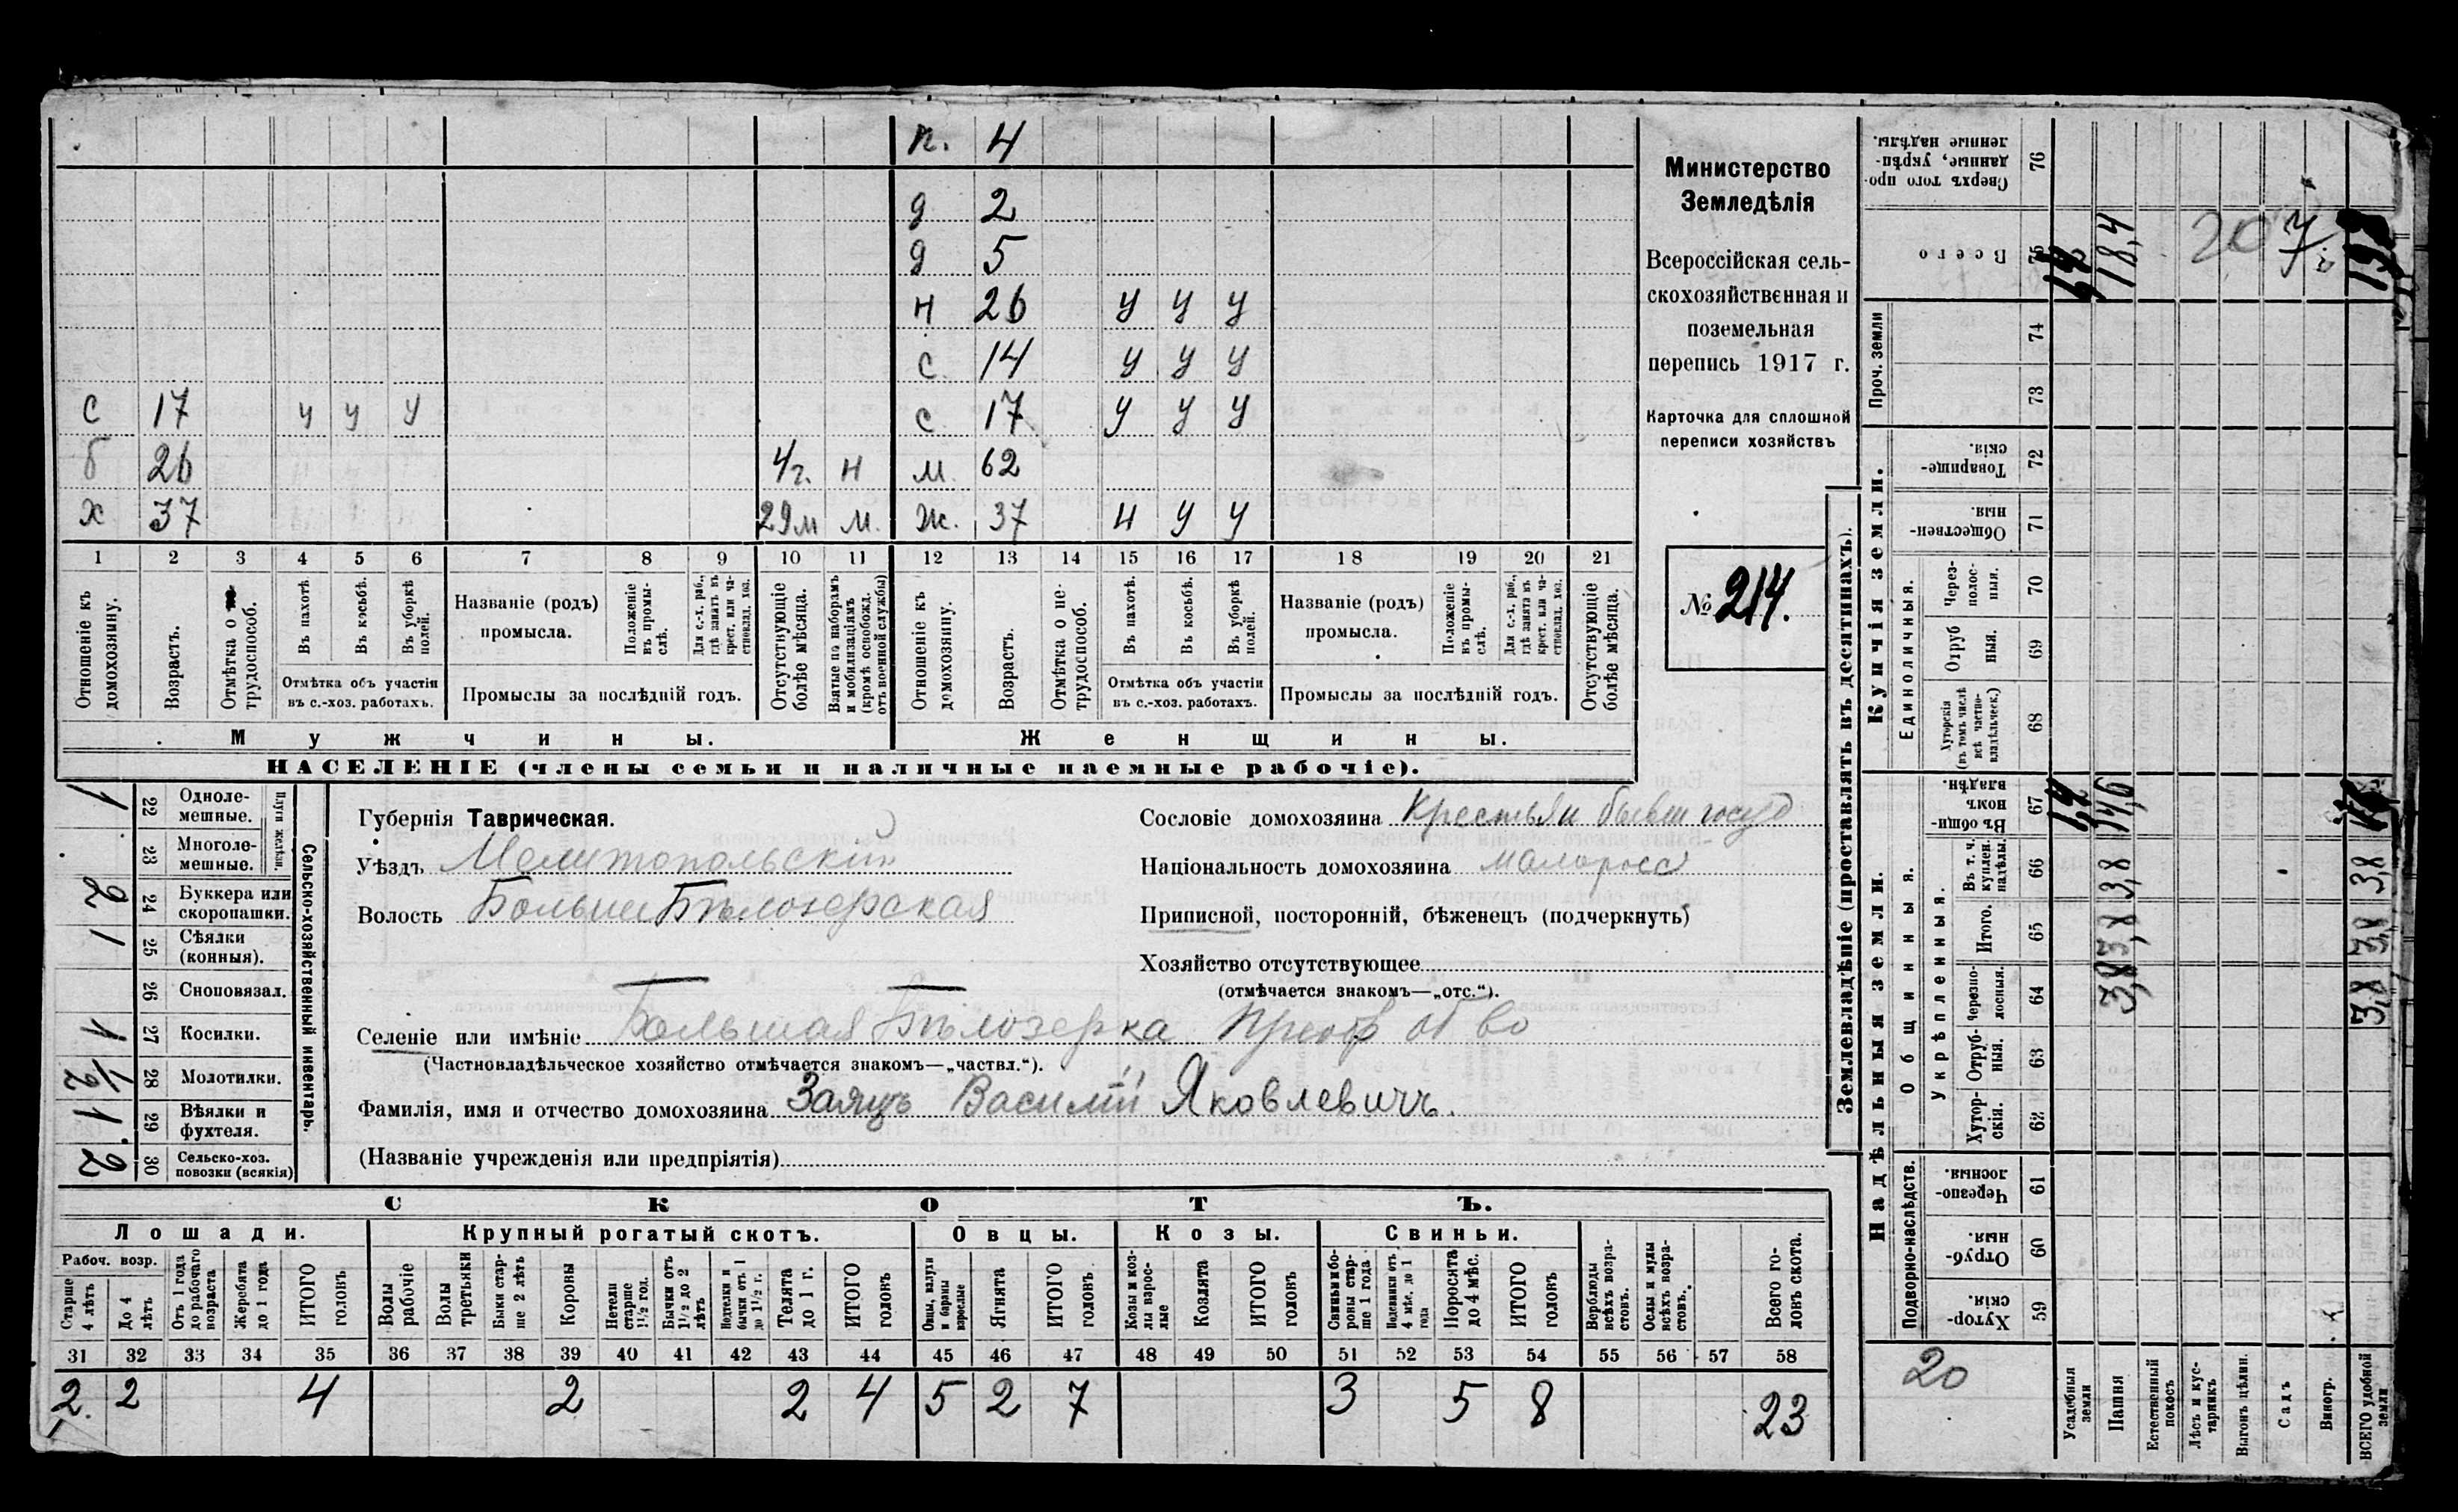 п. 4
д 2
д 5
н 26 у у у
с 14 у у у
с 17 у у у с 17 у у у
б 26 4 г. н м. 62
х 37 29 м м. ж. 37 н у у
1 2 3 4 5 6 7 8 9 10 11 12 13 14 15 16 17 18 19 20 21
Отношеніе къ домохозяину.
Возрастъ.
Отмѣтка о трудоспособ.
Въ пахотѣ
Въ косьбѣ.
Въ уборкѣ полей.
Отмѣтка объ участіи
въ с.-хоз. работахъ.
Названіе (родъ)
промысла.
Положеніе въ промыслѣ.
Для с.-х. раб., гдѣ занятъ въ крест. или частновлад. хоз.
Промыслы за послѣдній годъ.
Отсутствующіе болѣе мѣсяца.
Взятые по наборамъ и мобилизаціямъ (кромѣ освобожд. отъ военной службы)
Отношеніе къ домохозяину.
Возрастъ.
Отмѣтка о нетрудоспособ.
Въ пахотѣ.
Въ косьбѣ.
Въ уборкѣ полей.
Отмѣтка объ участіи
въ с.-хоз. работахъ.
Названіе (родъ)
промысла.
Положеніе въ промыслѣ.
Для с.-х. раб., гдѣ занята въ крест. или частновлад. хоз.
Промыслы за послѣдній годъ.
Отсутствующіе болѣе мѣсяца.
Мужчины. Женщины.
НАСЕЛЕНІЕ (члены семьи и наличные наемные рабочіе).
Министерство
Земледѣлія
Всероссійская сель-
скохозяйственная и
поземельная
перепись 1917 г.
Карточка для сплошной
переписи хозяйствъ
№ 214.
Сельско-хозяйственный инвентарь.
Плуги желѣзн.
1 22 Однолемешные.
23 Многолемешные.
2 24 Буккера или скоропашки.
1 25 Сѣялки (конныя).
26 Сноповязал.
1 27 Косилки.
1/2 28 Молотилки.
1 29 Вѣялки и фухтеля.
2 30 Сельско-хоз. повозки (всякія)
Губернія Таврическая.
Уѣздъ Мелитопольскій
Волость Больше Бѣлозерская
Сословіе домохозяина Крестьян бывш госуд
Національность домохозяина малоросс
Приписной, посторонній, бѣженецъ (подчеркнуть)
Хозяйство отсутствующее
(отмѣчается знакомъ—„отс.“).
Селеніе или имѣніе Большая Бѣлозерка Преоб об во
(Частновладѣльческое хозяйство отмѣчается знакомъ—„частвл.“).
Фамилія, имя и отчество домохозяина Заяцъ Василій Яковлевичъ.
(Названіе учрежденія или предпріятія)
СКОТЪ.
Лошади. Крупный рогатый скотъ. Овцы. Козы. Свиньи.
Рабоч. возр.
Старше 4 лѣтъ
До 4 лѣтъ
Отъ 1 года до рабочаго возраста
Жеребята до 1 года
ИТОГО головъ
Волы рабочіе
Волы третьяки
Быки старше 2 лѣтъ
Коровы
Нетели старше 1½ год.
Бычки отъ 1½ до 2 лѣтъ
Нетелки и бычки отъ 1 до 1½ г.
Телята до 1 г.
ИТОГО головъ
Овцы, валухи и бараны взрослые
Ягнята
ИТОГО головъ
Козы и козлы взрослые
Козлята
ИТОГО головъ
Свиньи и боровы старше 1 года
Подсвинки отъ 4 мѣс. до 1 года
Поросята до 4 мѣс.
ИТОГО головъ
Верблюды всѣхъ возрастовъ.
Ослы и мулы всѣхъ возрастовъ.
Всего головъ скота.
31 32 33 34 35 36 37 38 39 40 41 42 43 44 45 46 47 48 49 50 51 52 53 54 55 56 57 58
2 2 4 2 2 4 5 2 7 3 5 8 23
Землевладѣніе (проставлять въ десятинахъ).
Купчія земли.
Надѣльныя земли.
Сверхъ того проданные, укрѣпленные надѣлы. 76
Всего 75 18,4
Проч. земли 74
73
Товарищескія. 72
Общественныя. 71
Единоличныя.
Черезполосныя. 70
Отрубныя. 69
Хуторскія (въ томъ числѣ всѣ частновладѣльческ.) 68
Общинныя.
Въ общинномъ владѣн. 67 14,6
Укрѣпленныя.
Въ т. ч. куплен. надѣлы. 66 3,8 3,8
Итого. 65 3,8 3,8
Черезполосныя. 64 3,8 3,8
Отрубныя. 63
Хуторскія. 62
Подворно-наслѣдств.
Черезполосныя. 61
Отрубныя. 60
Хуторскія. 59
20
Усадебныя земли
Пашня
Естественный покосъ
Лѣсъ и кустарникъ
Выгонъ цѣлин.
Садъ
Виногр.
ВСЕГО удобной земли